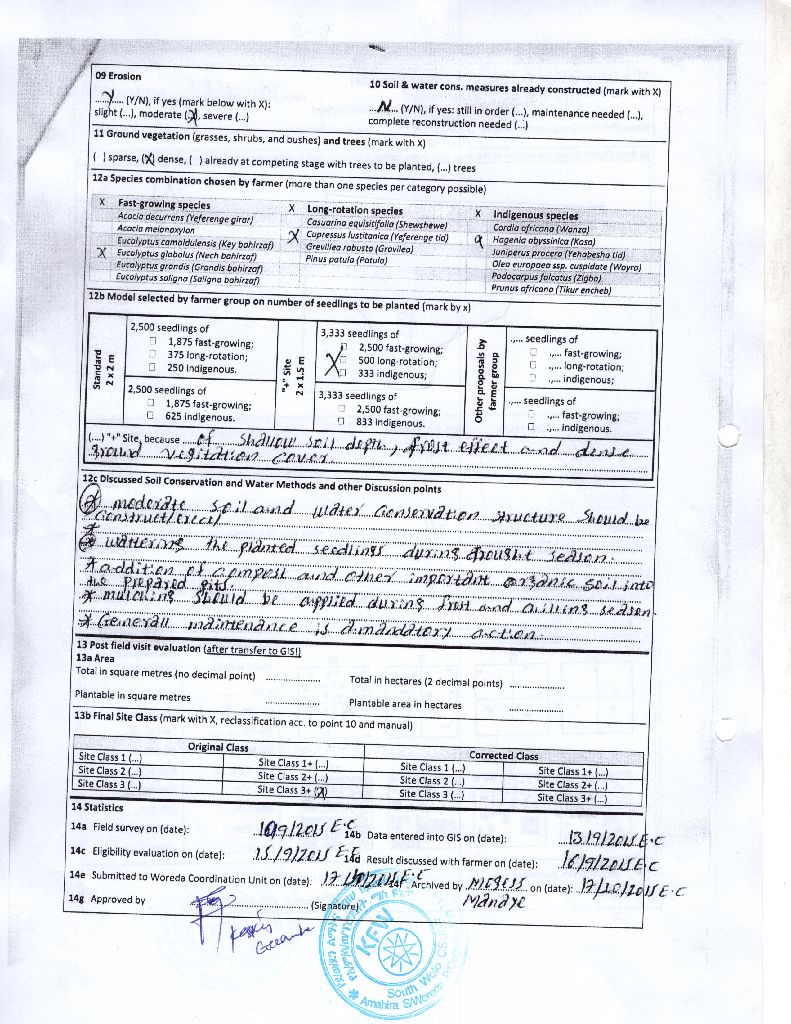 09 Erosion
..Y.. (Y/N), if yes (mark below with X):
slight (...), moderate (X), severe (...)
10 Soil & water cons. measures already constructed (mark with X)
...N... (Y/N), if yes: still in order (...), maintenance needed (...),
complete reconstruction needed (...)
11 Ground vegetation (grasses, shrubs, and bushes) and trees (mark with X)
( ) sparse, (X) dense, ( ) already at competing stage with trees to be planted, (...) trees
12a Species combination chosen by farmer (more than one species per category possible)
X Fast-growing species
Acacia decurrens (Yeferenge girar)
Acacia melonoxylon
Eucalyptus camaldulensis (Key bahirzaf)
X Eucalyptus globolus (Nech bahirzaf)
Eucalyptus grandis (Grandis bahirzaf)
Eucalyptus saligna (Saligna bahirzaf)
X Long-rotation species
Casuarina equisitifolia (Shewshewe)
X Cupressus lustitanica (Yeferenge tid)
Grevillea robusta (Gravilea)
Pinus patula (Patula)
X Indigenous species
Cordia africana (Wanza)
Hagenia abyssinica (Kosa)
Juniperus procera (Yehabesha tid)
Olea europaea ssp. cuspidate (Woyra)
Podocarpus falcatus (Zigba)
Prunus africana (Tikur encheb)
12b Model selected by farmer group on number of seedlings to be planted (mark by x)
Standard
2 x 2 m
2,500 seedlings of
☐ 1,875 fast-growing;
☐ 375 long-rotation;
☐ 250 indigenous.
2,500 seedlings of
☐ 1,875 fast-growing;
☐ 625 indigenous.
"+" Site
2 x 1.5 m
3,333 seedlings of
☐ 2,500 fast-growing;
X ☐ 500 long-rotation;
☐ 333 indigenous;
3,333 seedlings of
☐ 2,500 fast-growing;
☐ 833 indigenous.
Other proposals by
farmer group
.,... seedlings of
☐ .,... fast-growing;
☐ .,... long-rotation;
☐ .,... indigenous;
.,... seedlings of
☐ .,... fast-growing;
☐ .,... indigenous.
(....) "+" Site, because of shallow soil depth, frost effect and dense
ground vegitation cover
12c Discussed Soil Conservation and Water Methods and other Discussion points
* moderate soil and water conservation structure should be
construct/erect/
* wattering the planted seedlings during drought season.
* addition of compost and other important organic soil into
the prepared pits.
* mulching should be applied during frost and chilling season.
* Generall maintenance is a mandatory action.
13 Post field visit evaluation (after transfer to GIS!)
13a Area
Total in square metres (no decimal point) ..................
Total in hectares (2 decimal points) ..................
Plantable in square metres ..................
Plantable area in hectares ..................
13b Final Site Class (mark with X, reclassification acc. to point 10 and manual)
Original Class
Corrected Class
Site Class 1 (...) Site Class 1+ (...) Site Class 1 (...) Site Class 1+ (...)
Site Class 2 (...) Site Class 2+ (...) Site Class 2 (...) Site Class 2+ (...)
Site Class 3 (...) Site Class 3+ (X) Site Class 3 (...) Site Class 3+ (...)
14 Statistics
14a Field survey on (date): 10/9/2015 E.C
14b Data entered into GIS on (date): 13/9/2015 E.C
14c Eligibility evaluation on (date): 15/9/2015 E.C
14d Result discussed with farmer on (date): 16/9/2015 E.C
14e Submitted to Woreda Coordination Unit on (date):
14f Archived by on (date): 17/10/2015 E.C
14g Approved by .................. (Signature)
KFW
South Wolo